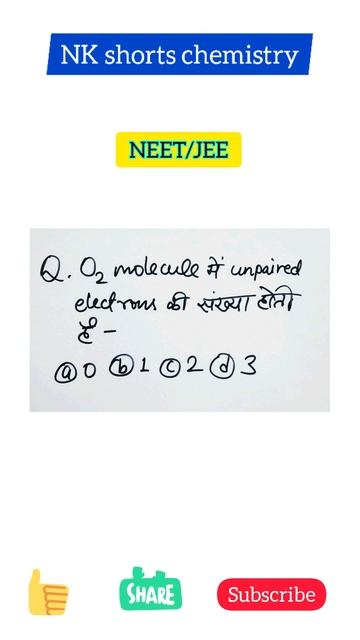 NK shorts chemistry
NEET/JEE
Q. O₂ molecule में unpaired
electrons की संख्या होती
है –
(a) 0 (b) 1 (c) 2 (d) 3
SHARE
Subscribe